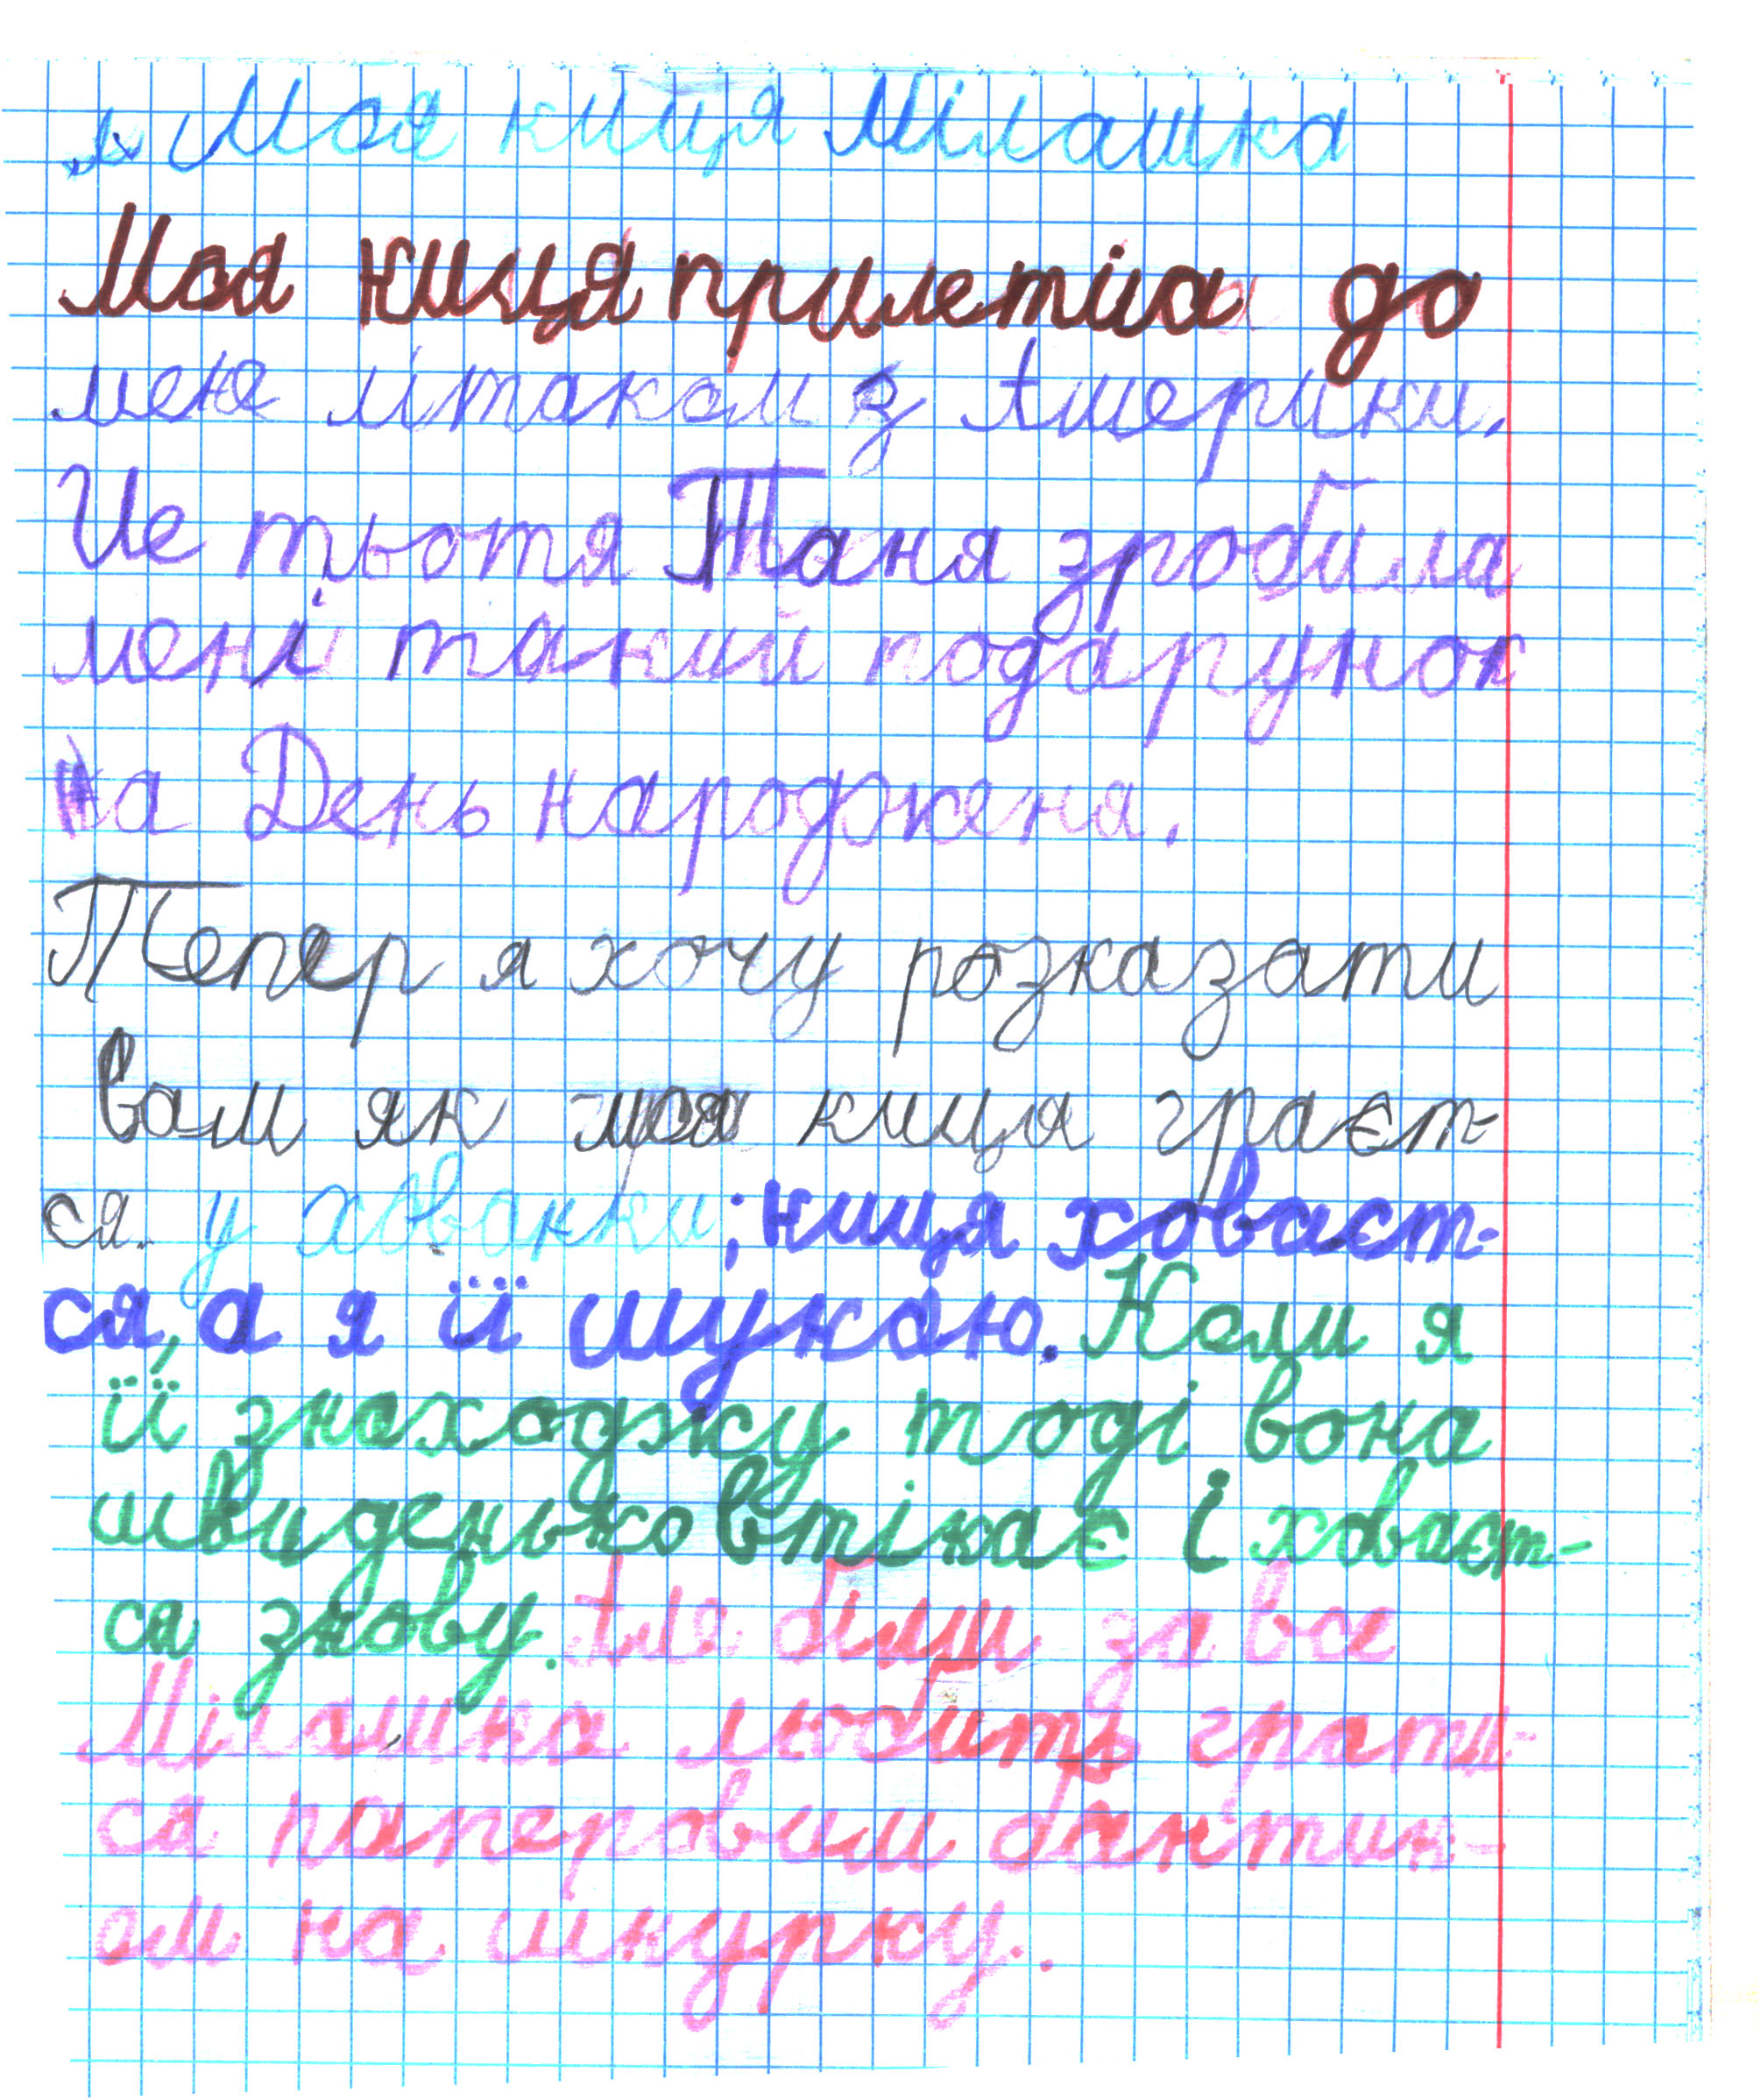 Моя киця Мілашка
Моя киця прилетіла до
мене літаком з Америки.
Це тьотя Таня зробила
мені такий подарунок
на День народженя.
Тепер я хочу розказати
вам як моя киця граєт-
ся у хованки; киця ховаєт-
ся, а я її шукаю. Коли я
її знаходжу тоді вона
швиденько втікає і ховаєт-
ся знову. Але більш за все
Мілашка любить грати-
ся паперовим бантик-
ом на шнурку.